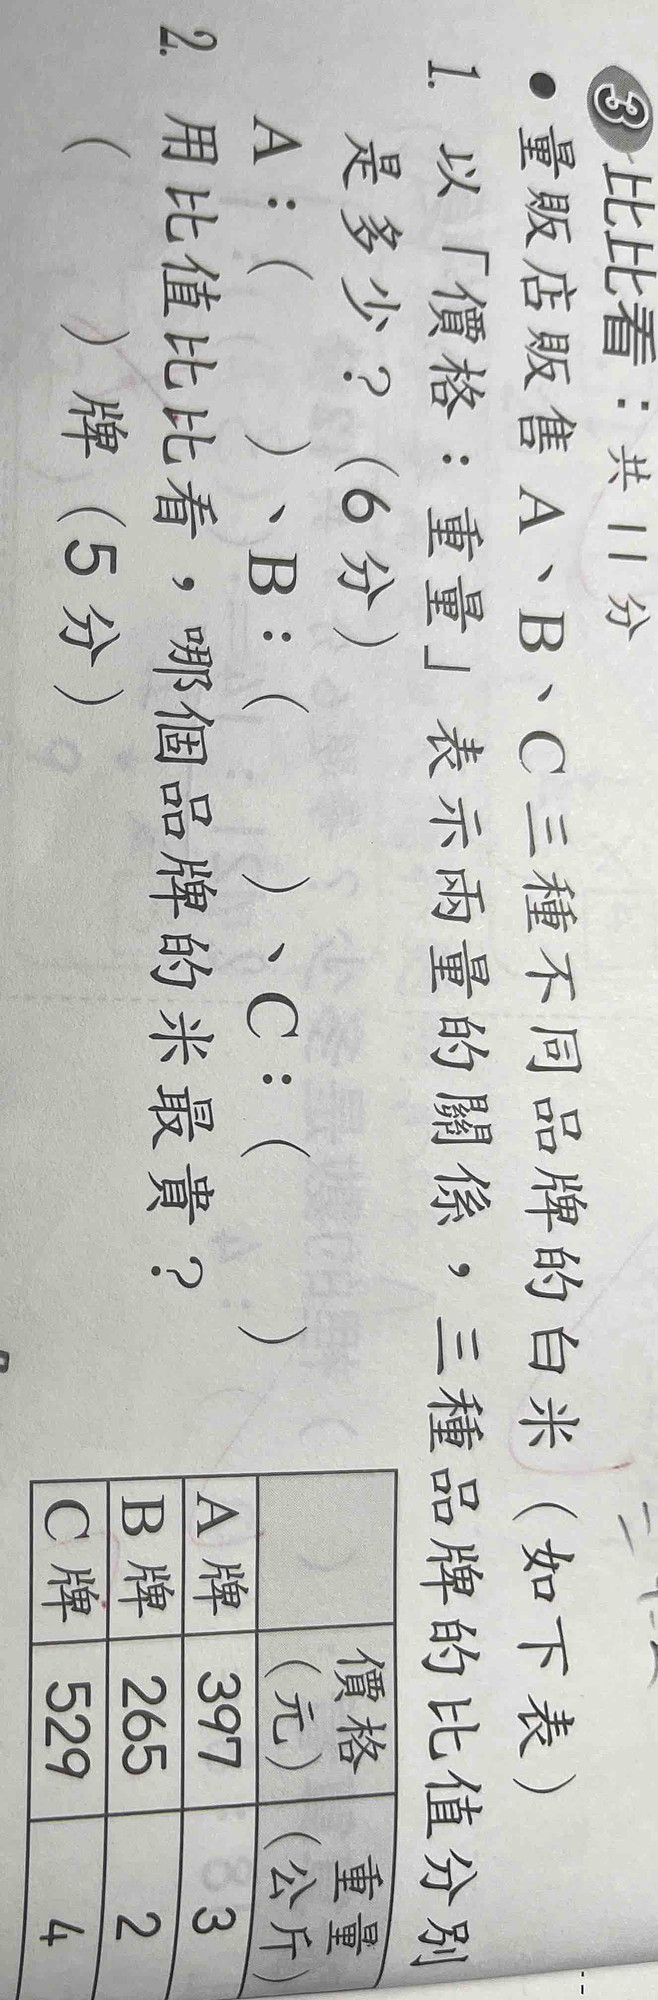 3 比比看：共11分
●量販店販售A、B、C三種不同品牌的白米（如下表）
1. 以「價格：重量」表示兩量的關係，三種品牌的比值分別
是多少？（6分）
A：（ ）、B：（ ）、C：（ ）
2. 用比值比比看，哪個品牌的米最貴？
（ ）牌（5分）
價格（元） 重量（公斤）
A牌 397 3
B牌 265 2
C牌 529 4